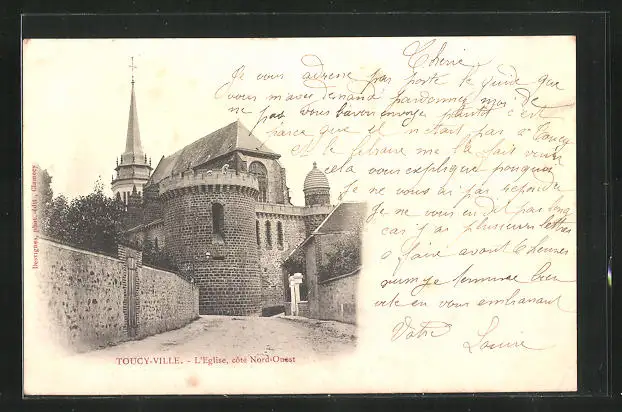 Chérie
Je vous adresse par poste le guide que
vous m'avez demandé pardonnez moi de
ne pas vous l'avoir envoyer plutôt c'est
parce que il n'était pas à Toucy
et le libraire me l'a fait venir
cela vous explique pourquoi
je ne vous ai pas répondu
Je ne vous en dit pas long
car j'ai plusieurs lettres
à faire avant
je termine bien
vite en vous embrassant
Votre Louise
Desvignes, phot. édit., Clamecy
TOUCY-VILLE. - L'Eglise, côté Nord-Ouest